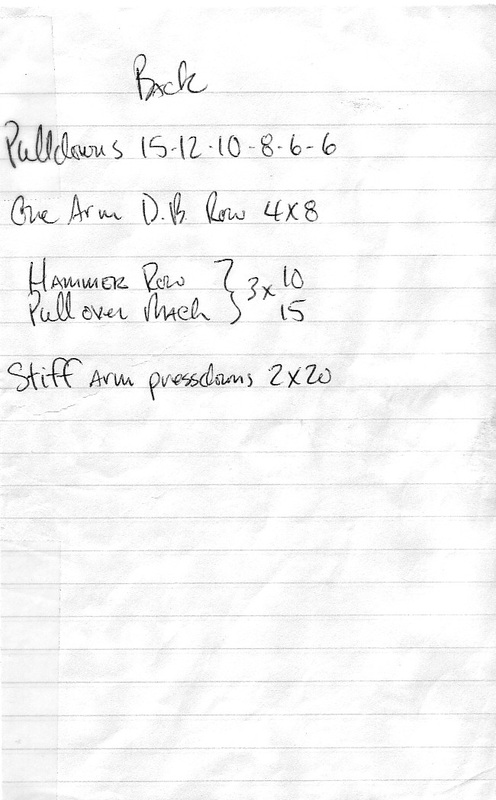 Back
Pulldowns 15-12-10-8-6-6
One Arm D.B. Row 4x8
Hammer Row } 3x 10
Pull over Mach } 15
Stiff Arm pressdowns 2x20